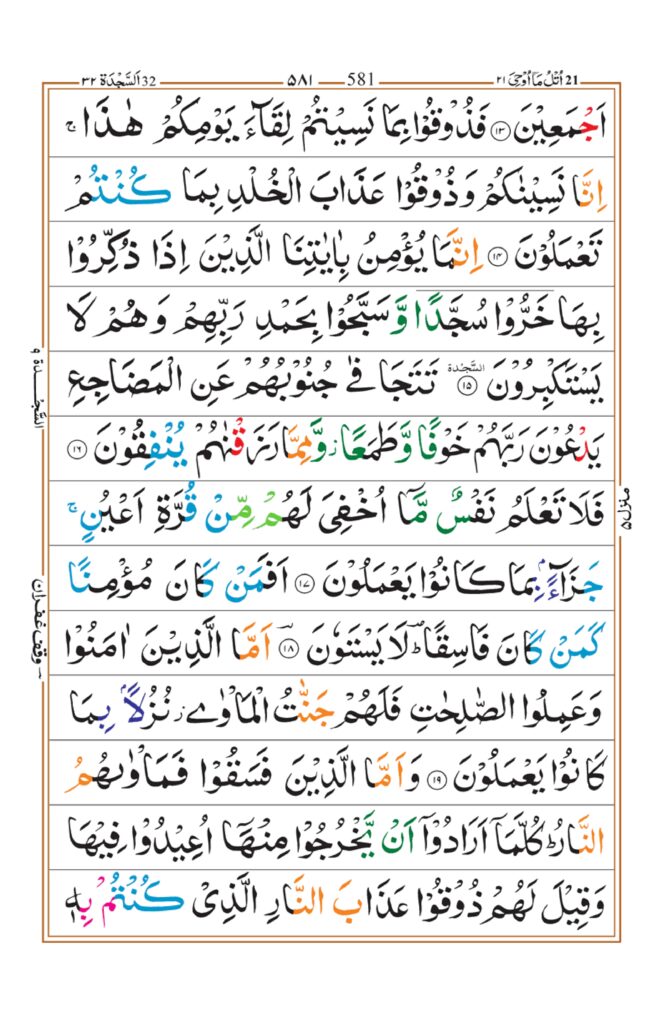 21 اُتْلُ مَاۤ اُوْحِیَ ۲۱
581 ۵۸۱
32 اَلسَّجْدَة ۳۲
اَجْمَعِیْنَ ۝۱۳ فَذُوْقُوْا بِمَا نَسِیْتُمْ لِقَآءَ یَوْمِكُمْ هٰذَا ۚ
اِنَّا نَسِیْنٰكُمْ وَ ذُوْقُوْا عَذَابَ الْخُلْدِ بِمَا كُنْتُمْ
تَعْمَلُوْنَ ۝۱۴ اِنَّمَا یُؤْمِنُ بِاٰیٰتِنَا الَّذِیْنَ اِذَا ذُكِّرُوْا
بِهَا خَرُّوْا سُجَّدًا وَّ سَبَّحُوْا بِحَمْدِ رَبِّهِمْ وَ هُمْ لَا
یَسْتَكْبِرُوْنَ ۝۱۵ السَّجْدَة تَتَجَافٰى جُنُوْبُهُمْ عَنِ الْمَضَاجِعِ
یَدْعُوْنَ رَبَّهُمْ خَوْفًا وَّ طَمَعًا ؗ وَّ مِمَّا رَزَقْنٰهُمْ یُنْفِقُوْنَ ۝۱۶
فَلَا تَعْلَمُ نَفْسٌ مَّاۤ اُخْفِیَ لَهُمْ مِّنْ قُرَّةِ اَعْیُنٍ ۚ
جَزَآءًۢ بِمَا كَانُوْا یَعْمَلُوْنَ ۝۱۷ اَفَمَنْ كَانَ مُؤْمِنًا
كَمَنْ كَانَ فَاسِقًا ؔؕ لَا یَسْتَوٗنَ ۝۱۸ اَمَّا الَّذِیْنَ اٰمَنُوْا
وَ عَمِلُوا الصّٰلِحٰتِ فَلَهُمْ جَنّٰتُ الْمَاْوٰى ؗ نُزُلًۢا بِمَا
كَانُوْا یَعْمَلُوْنَ ۝۱۹ وَ اَمَّا الَّذِیْنَ فَسَقُوْا فَمَاْوٰىهُمُ
النَّارُ ؕ كُلَّمَاۤ اَرَادُوْۤا اَنْ یَّخْرُجُوْا مِنْهَاۤ اُعِیْدُوْا فِیْهَا
وَ قِیْلَ لَهُمْ ذُوْقُوْا عَذَابَ النَّارِ الَّذِیْ كُنْتُمْ بِهٖ
السَّجْدَة ۹
وقف غفران
منزل ۵